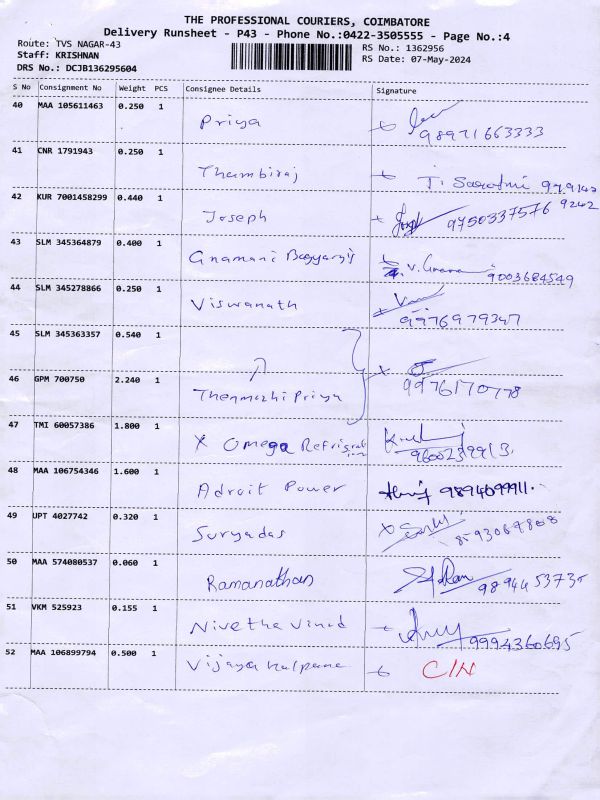 THE PROFESSIONAL COURIERS, COIMBATORE
Delivery Runsheet - P43 - Phone No.:0422-3505555 - Page No.:4
Route: TVS NAGAR-43
RS No.: 1362956
Staff: KRISHNAN
RS Date: 07-May-2024
DRS No.: DCJB136295604
S No Consignment No Weight PCS Consignee Details Signature
40 MAA 105611463 0.250 1
Priya
98971663333
41 CNR 1791943 0.250 1
Thambiraj T. Saratmi
42 KUR 7001458299 0.440 1 9242
Joseph 9750337576
43 SLM 345364879 0.400 1
Gnamani Bagyaraj 9003684549
44 SLM 278866 0.250 1
Viswanath
9976979347
45 SLM 345363357 0.540 1
46 GPM 700750 2.240 1
Thenmozhi Priya 9976170778
47 TMI 60057386 1.800 1
X Omega Refrigration 9600239913.
48 MAA 106754346 1.600 1
Adroit Power 9894699911.
49 UPT 4027742 0.320 1
Suryadas 8593069808
50 MAA 574080537 0.060 1
Ramanathan
51 VKM 525923 0.155 1
Nivetha Vinod 9994360695
52 MAA 106899794 0.500 1
Vijaya kalpana C/H